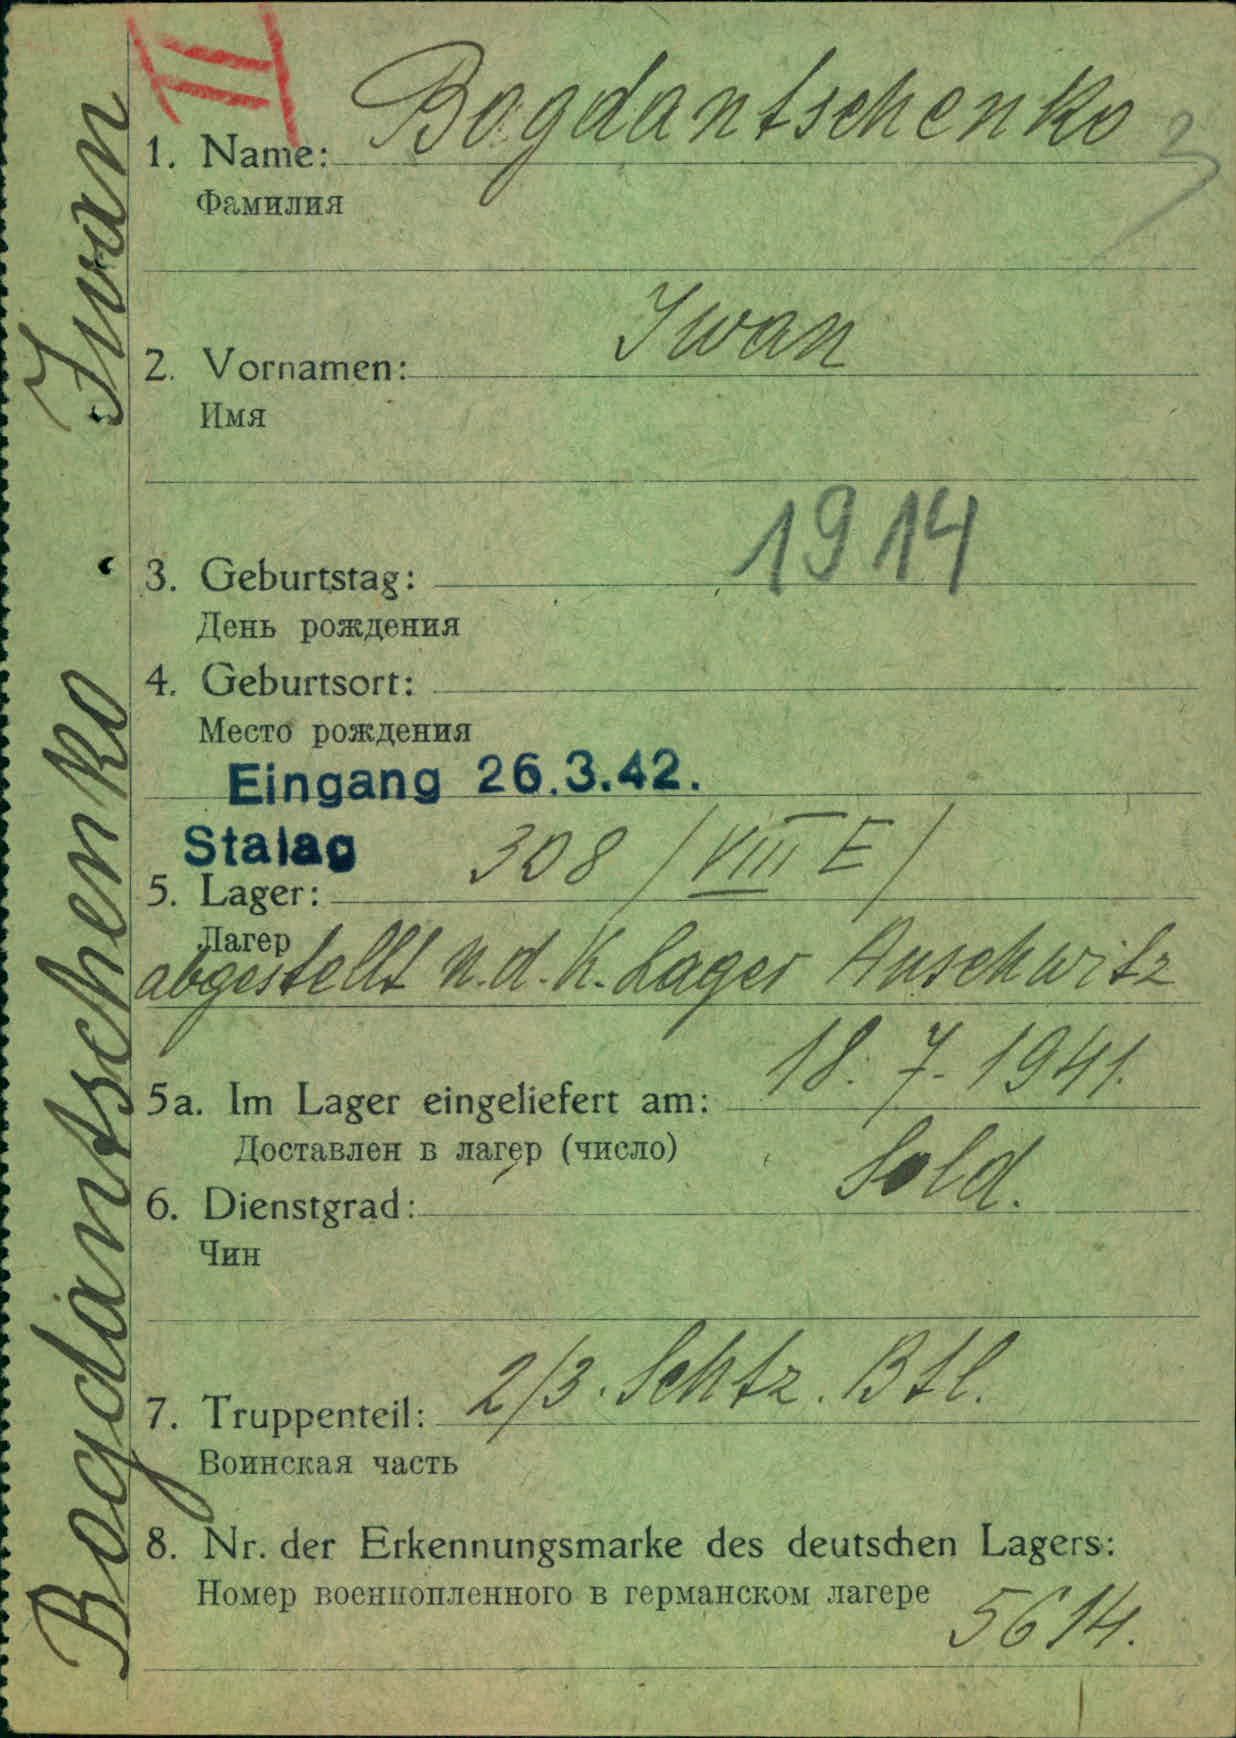 II
Bogdantschenko
1. Name:
Фамилия
Iwan
2. Vornamen:
Имя
1914
3. Geburtstag:
День рождения
4. Geburtsort:
Место рождения
Eingang 26.3.42.
Stalag 308 /VIII E/
5. Lager:
Лагер
abgestellt n.d. K. Lager Auschwitz
5a. Im Lager eingeliefert am: 18. 7. 1941.
Доставлен в лагер (число)
6. Dienstgrad: Sold.
Чин
7. Truppenteil: 2/3. Schtz. Btl.
Воинская часть
8. Nr. der Erkennungsmarke des deutschen Lagers:
Номер военнопленного в германском лагере 5614.
Bogdantschenko Iwan